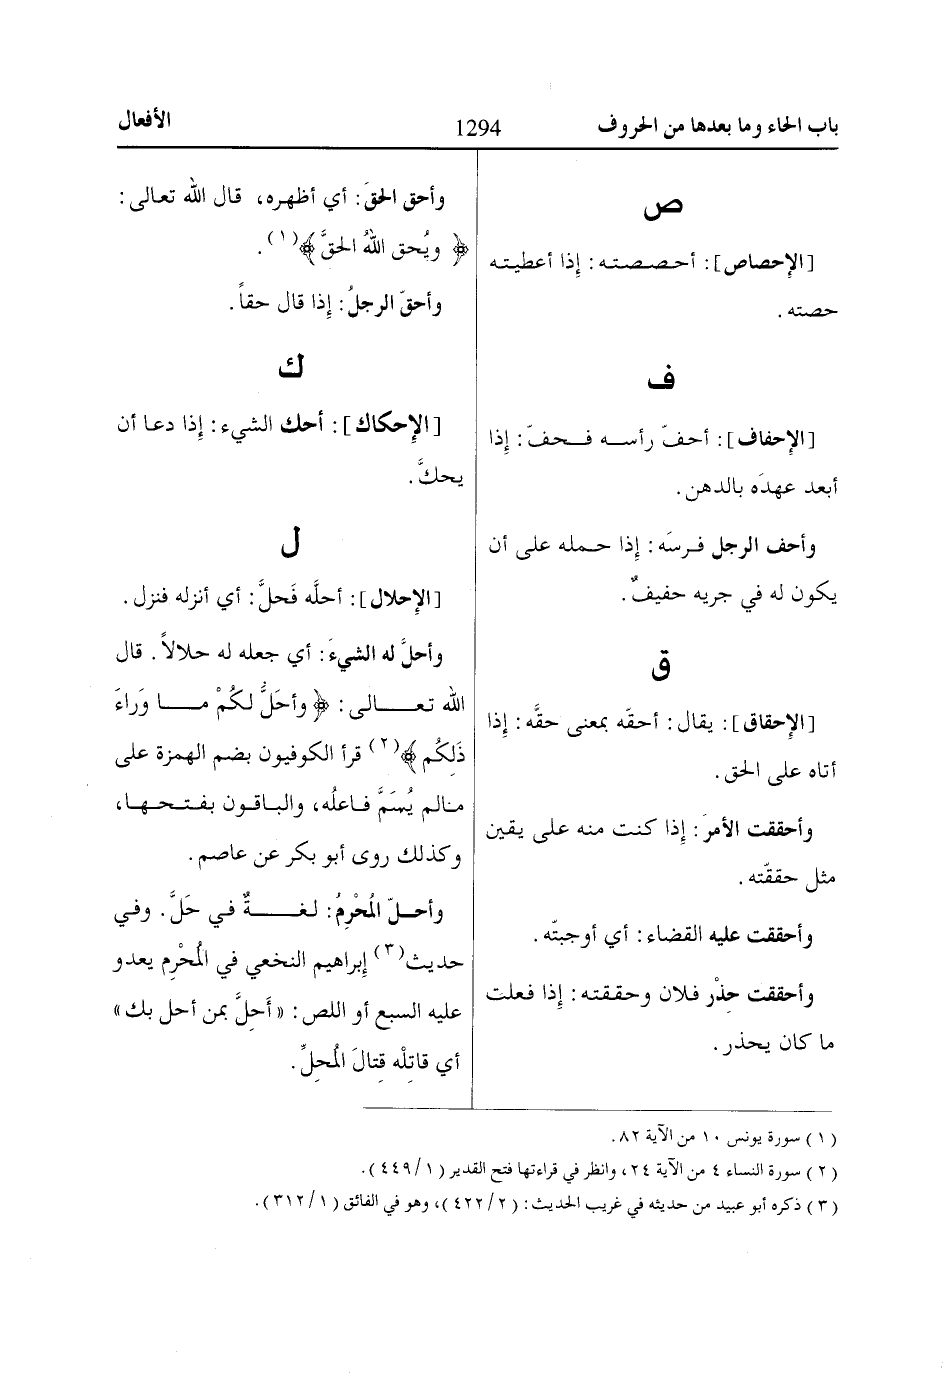 باب الحاء وما بعدها من الحروف
1294
الأفعال
ص
[الإحصاص]: أحصصته: إذا أعطيته
حصته.
ف
[الإحفاف]: أحفّ رأسه فحفّ: إذا
أبعد عهدَه بالدهن.
وأحف الرجل فرسَه: إذا حمله على أن
يكون له في جريه حفيفٌ.
ق
[الإحقاق]: يقال: أحقّه بمعنى حقَّه: إذا
أتاه على الحق.
وأحققت الأمرَ: إذا كنت منه على يقين
مثل حققّته.
وأحققت عليه القضاء: أي أوجبتّه.
وأحققت حِذْر فلان وحققته: إذا فعلت
ما كان يحذر.
وأحق الحقَ: أي أظهره، قال الله تعالى:
﴿ ويُحق اللهُ الحقَّ﴾(١).
وأحقّ الرجلُ: إذا قال حقاً.
ك
[الإحكاك]: أحك الشيء: إذا دعا أن
يحكَّ.
ل
[الإحلال]: أحلَّه فَحلَّ: أي أنزله فنزل.
وأحلَّ له الشيءَ: أي جعله له حلالاً. قال
الله تعالى: ﴿ وأحَلَُّ لكُمْ ما وَراءَ
ذَلِكُم ﴾(٢) قرأ الكوفيون بضم الهمزة على
مالم يُسَمَّ فاعلُه، والباقون بفتحها،
وكذلك روى أبو بكر عن عاصم.
وأحلّ المُحْرِمُ: لغةٌ في حَلَّ. وفي
حديث(٣) إبراهيم النخعي في المُحْرِم يعدو
عليه السبع أو اللص: «أَحِلَّ بمن أحل بك»
أي قاتِلْه قِتالَ المُحلِّ.
(١) سورة يونس ١٠ من الآية ٨٢.
(٢) سورة النساء ٤ من الآية ٢٤، وانظر في قراءتها فتح القدير (١/٤٤٩).
(٣) ذكره أبو عبيد من حديثه في غريب الحديث: (٢/٤٢٢)، وهو في الفائق (١/٣١٢).